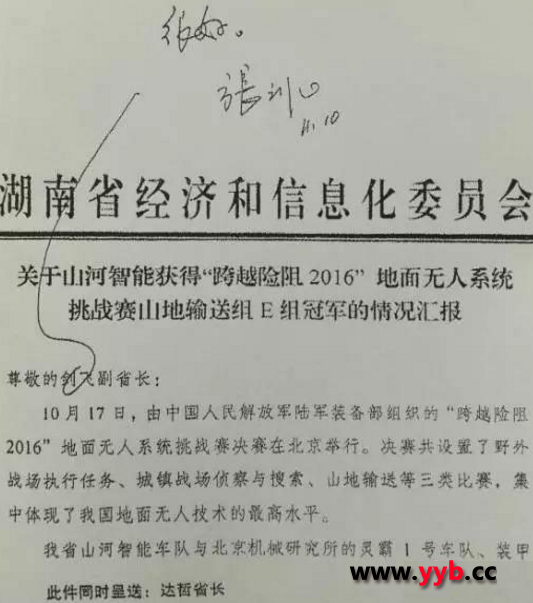 很好。
張剑飞
11.10
湖南省经济和信息化委员会
关于山河智能获得“跨越险阻 2016” 地面无人系统
挑战赛山地输送组 E 组冠军的情况汇报
尊敬的剑飞副省长：
10 月 17 日，由中国人民解放军陆军装备部组织的“跨越险阻
2016”地面无人系统挑战赛决赛在北京举行。决赛共设置了野外
战场执行任务、城镇战场侦察与搜索、山地输送等三类比赛，集
中体现了我国地面无人技术的最高水平。
我省山河智能车队与北京机械研究所的灵霸 1 号车队、装甲
此件同时呈送：达哲省长
www.yyb.cc